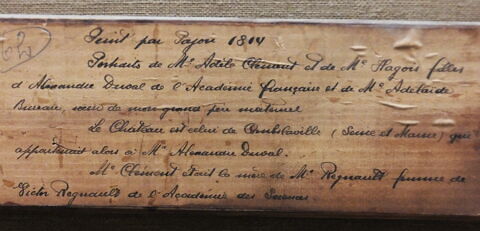 62
Peint par Pajou 1814
Portraits de Me Adèle Clement et de Me Hagois filles
d'Alexandre Duval de l'Academie française et de Me Adélaïde
Bureau, sœur de mon grand père maternel
Le Chateau est celui de (Seine et Marne) qui
appartenait alors à Mr Alexandre Duval.
Me Clement était la mère de Me Regnault femme de
Victor Regnault de l'Academie des Sciences